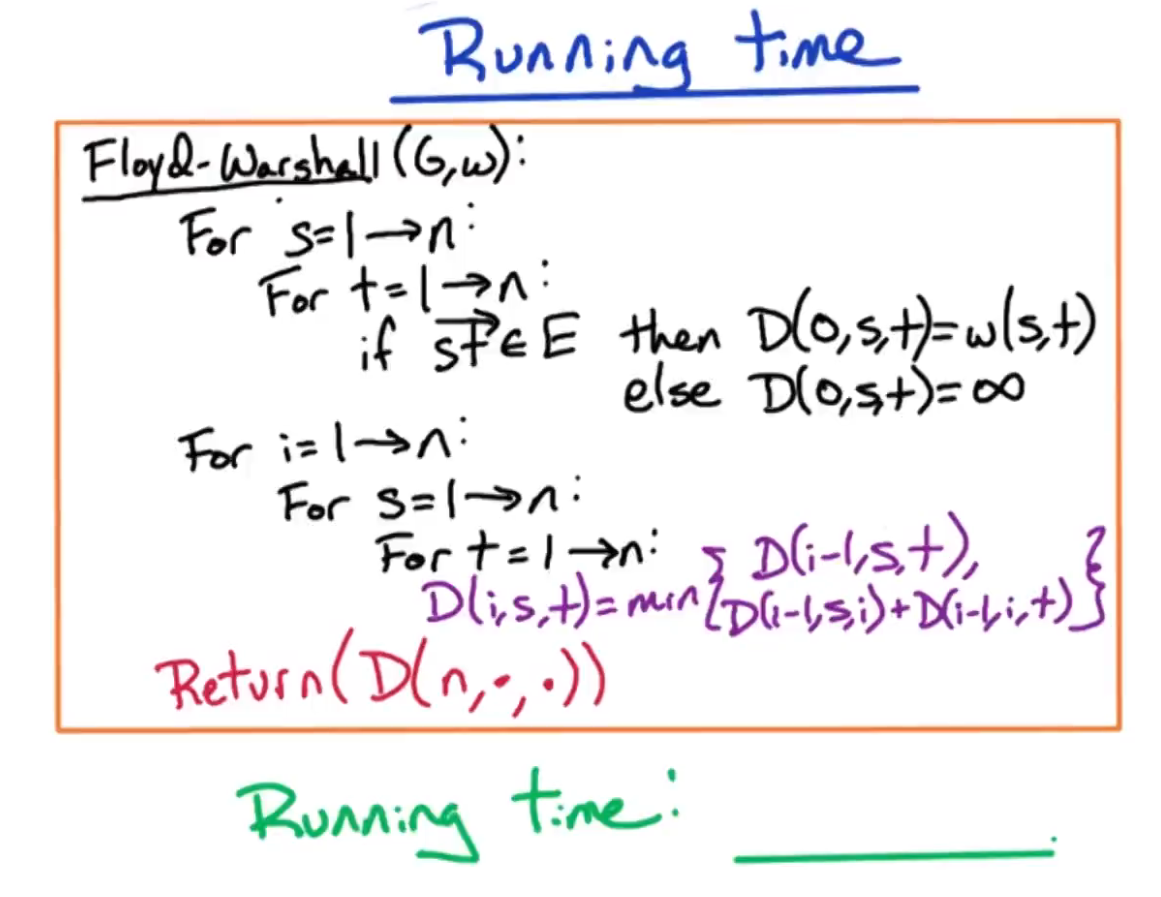 Running time
Floyd-Warshall(G,w):
For s=1→n:
For t=1→n:
if →st∈E then D(0,s,t)=w(s,t)
else D(0,s,t)=∞
For i=1→n:
For s=1→n:
For t=1→n:
D(i,s,t)=min{D(i-1,s,t),
D(i-1,s,i)+D(i-1,i,t)}
Return(D(n,·,·))
Running time: ______